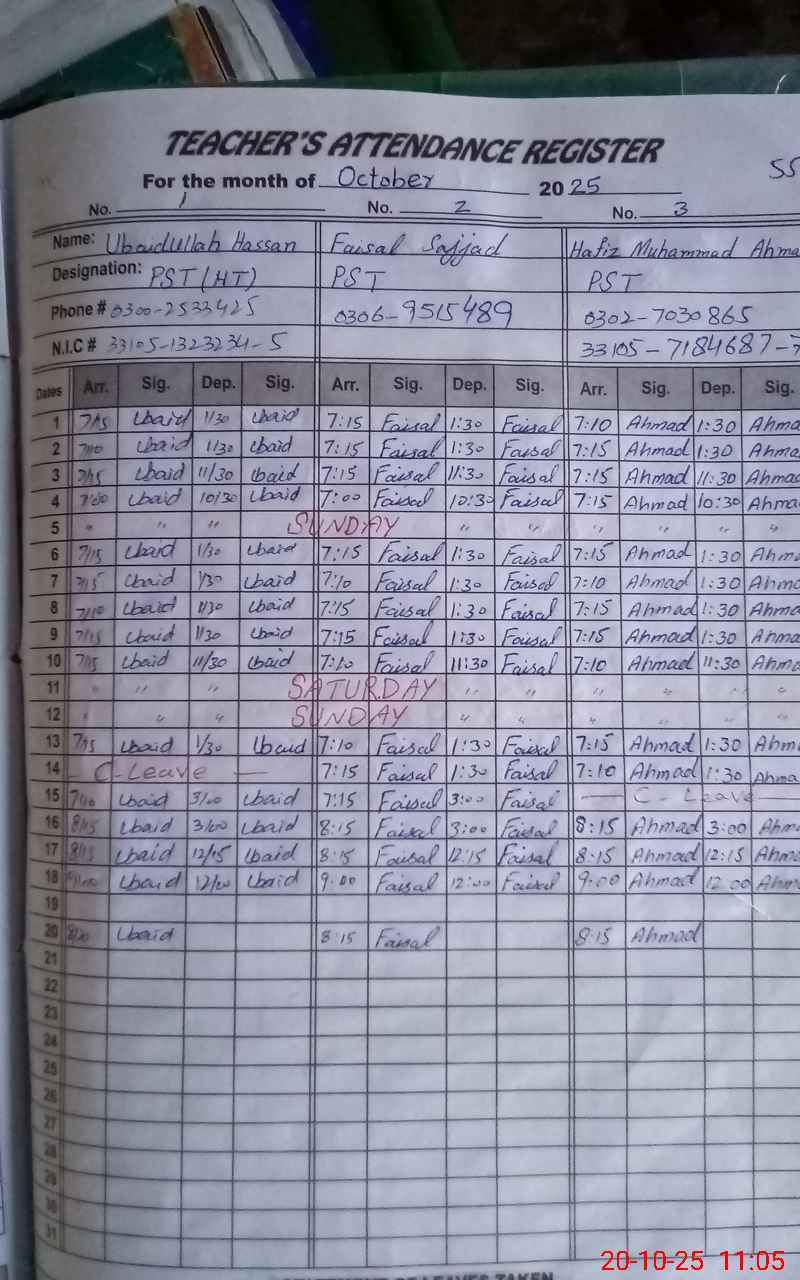 TEACHER'S ATTENDANCE REGISTER
SS
For the month of October 2025
No. 1 No. 2 No. 3
Name: Ubaidullah Hassan Faisal Sajjad Hafiz Muhammad Ahma
Designation: PST (HT) PST PST
Phone # 0300-2533425 0306-9515489 0302-7030865
N.I.C # 33105-1323234-5 33105-7184687-7
Dates Arr. Sig. Dep. Sig. Arr. Sig. Dep. Sig. Arr. Sig. Dep. Sig.
1 7/15 Ubaid 1/30 Ubaid 7:15 Faisal 1:30 Faisal 7:10 Ahmad 1:30 Ahma
2 7/10 Ubaid 1/30 Ubaid 7:15 Faisal 1:30 Faisal 7:15 Ahmad 1:30 Ahma
3 7/15 Ubaid 11/30 Ubaid 7:15 Faisal 11:30 Faisal 7:15 Ahmad 11:30 Ahma
4 7/00 Ubaid 10/30 Ubaid 7:00 Faisal 10:30 Faisal 7:15 Ahmad 10:30 Ahma
5 " " " SUNDAY " " " " " "
6 7/15 Ubaid 1/30 Ubaid 7:15 Faisal 1:30 Faisal 7:15 Ahmad 1:30 Ahma
7 7/15 Ubaid 1/30 Ubaid 7:10 Faisal 1:30 Faisal 7:10 Ahmad 1:30 Ahma
8 7/10 Ubaid 1/30 Ubaid 7:15 Faisal 1:30 Faisal 7:15 Ahmad 1:30 Ahma
9 7/15 Ubaid 1/30 Ubaid 7:15 Faisal 1:30 Faisal 7:15 Ahmad 1:30 Ahma
10 7/15 Ubaid 11/30 Ubaid 7:10 Faisal 11:30 Faisal 7:10 Ahmad 11:30 Ahma
11 " " " SATURDAY " " " " " "
12 " " " SUNDAY " " " " " "
13 7/15 Ubaid 1/30 Ubaid 7:10 Faisal 1:30 Faisal 7:15 Ahmad 1:30 Ahm
14 - C-Leave - 7:15 Faisal 1:30 Faisal 7:10 Ahmad 1:30 Ahma
15 7/10 Ubaid 3/00 Ubaid 7:15 Faisal 3:00 Faisal - C-Leave -
16 8/15 Ubaid 3/00 Ubaid 8:15 Faisal 3:00 Faisal 8:15 Ahmad 3:00 Ahm
17 8/15 Ubaid 12/15 Ubaid 8:15 Faisal 12:15 Faisal 8:15 Ahmad 12:15 Ahm
18 Ubaid 12/00 Ubaid 9:00 Faisal 12:00 Faisal 9:00 Ahmad 12:00 Ahm
19
20 Ubaid 8:15 Faisal 8:15 Ahmad
21
22
23
24
25
26
27
28
29
30
31
20-10-25 11:05